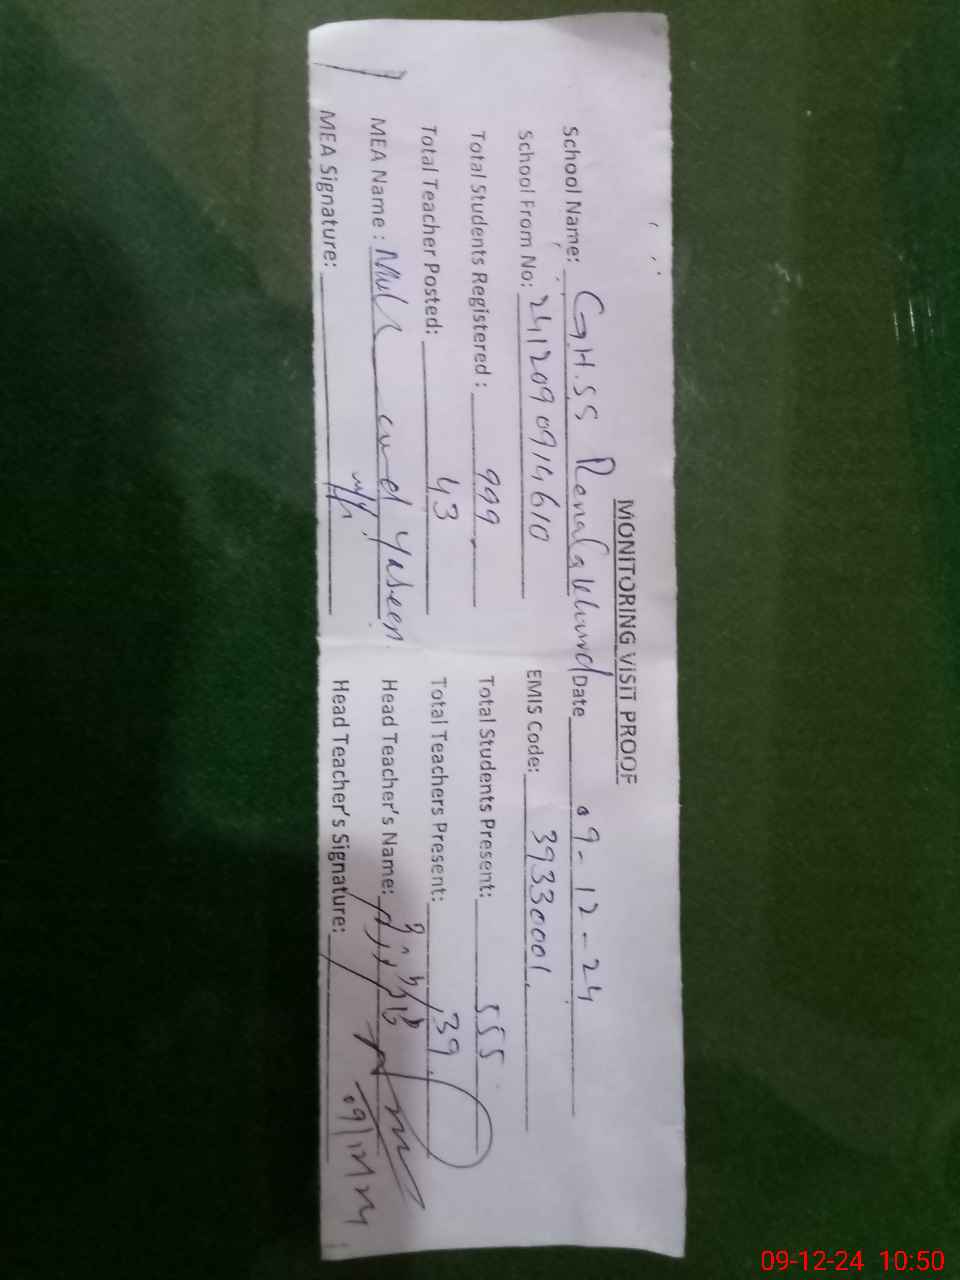 MONITORING VISIT PROOF
School Name: G.H.SS Renala Khurd Date 9-12-24
School From No: 2412090914610 EMIS Code: 39330001
Total Students Registered : 999 Total Students Present: 555
Total Teacher Posted: 43 Total Teachers Present: 39
MEA Name : Yaseen Head Teacher's Name:
MEA Signature: Head Teacher's Signature:
09/12/24
09-12-24 10:50